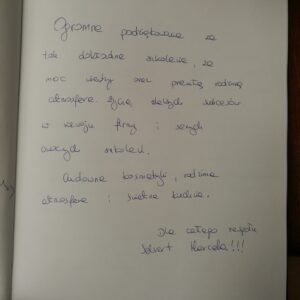 Ogromne podziękowania za
tak dokładne szkolenie, za
moc wiedzy oraz
atmosferę. Życzę dalszych sukcesów
w rozwoju firmy i samych
owocnych szkoleń.
Cudowne kosmetyki, rodzinna
atmosfera i świetna kuchnia.
Dla całego zespołu